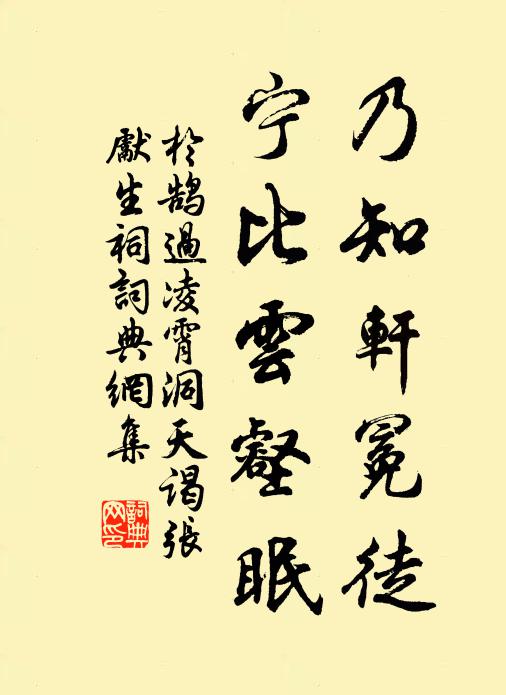 乃知軒冕徒
宁比雲壑眠
於鵠過凌霄洞天谒張
獻生祠詞典網集
詞典网印